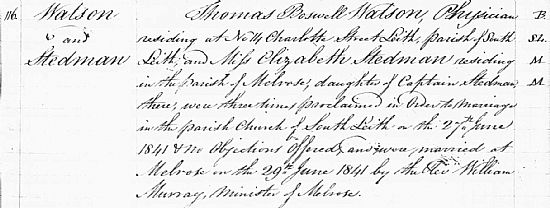 116. Watson and Stedman
Thomas Boswell Watson, Physician
residing at No 14 Charlotte Street Leith, parish of South
Leith; and Miss Elizabeth Stedman residing
in the Parish of Melrose, daughter of Captain Stedman
there, were three times proclaimed in Order to Marriage
in the parish Church of South Leith on the 27th June
1841 & no Objections Offered, and were married at
Melrose on the 29th June 1841 by the Rev William
Murray, Minister of Melrose.
B.
M.
M.